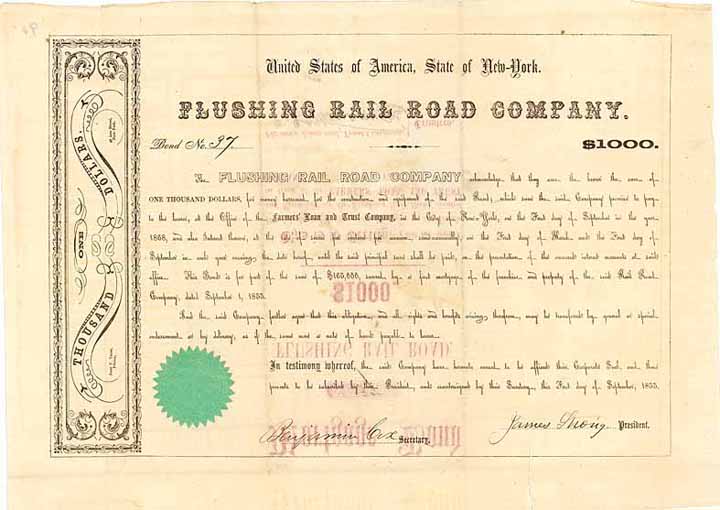 United States of America, State of New-York.
FLUSHING RAIL ROAD COMPANY.
Bond No. 37
$1000.
The FLUSHING RAIL ROAD COMPANY acknowledge, that they owe the bearer the sum of
ONE THOUSAND DOLLARS, for money borrowed for the construction and equipment of the said Road; which sum the said Company promise to pay
to the bearer, at the Office of the Farmers' Loan and Trust Company, in the City of New-York, on the First day of September in the year
1858, and also Interest thereon, at the rate of seven per centum per annum, semi-annually, on the First day of March and the First day of
September in each year ensuing the date hereof, until the said principal sum shall be paid, on the presentation of the annexed interest warrants at said
office. This Bond is for part of the sum of $165,000, secured by a first mortgage of the franchise and property of the said Rail Road
Company, dated September 1, 1853.
And the said Company further agree that this obligation, and all rights and benefits arising therefrom, may be transferred by general or special
endorsement or by delivery, as if the same were a note of hand payable to bearer.
In testimony whereof, the said Company have hereunto caused to be affixed their Corporate Seal, and these
presents to be subscribed by their President, and countersigned by their Secretary, this First day of September, 1853.
Benjamin Cox Secretary.
James Strong President.
ONE
THOUSAND DOLLARS.
$1000
FLUSHING RAIL ROAD.
Mortgage Bond